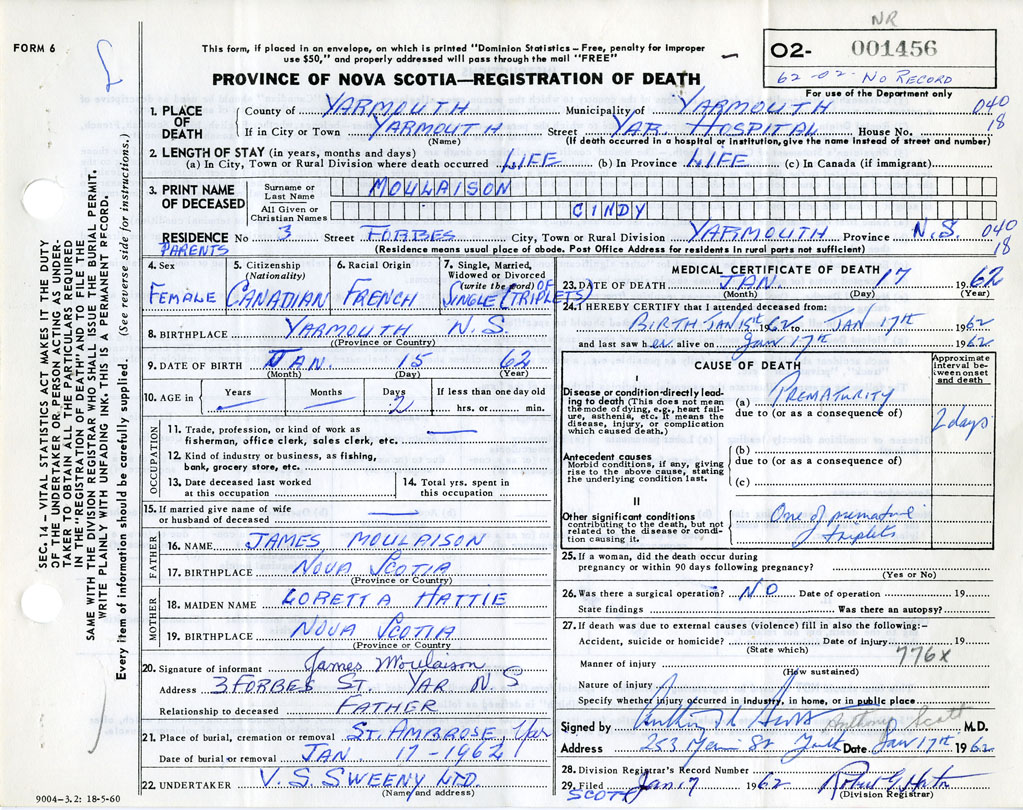 NR
FORM 6
This form, if placed in an envelope, on which is printed "Dominion Statistics – Free, penalty for improper
use $50," and properly addressed will pass through the mail "FREE"
O2- 001456
62-02- NO RECORD
For use of the Department only
PROVINCE OF NOVA SCOTIA—REGISTRATION OF DEATH
1. PLACE OF DEATH
County of YARMOUTH Municipality of YARMOUTH 040
If in City or Town YARMOUTH Street YAR. HOSPITAL House No. 18
(Name) (If death occurred in a hospital or institution, give the name instead of street and number)
2. LENGTH OF STAY (in years, months and days)
(a) In City, Town or Rural Division where death occurred LIFE (b) In Province LIFE (c) In Canada (if immigrant)
3. PRINT NAME OF DECEASED
Surname or Last Name MOULAISON
All Given or Christian Names CINDY
RESIDENCE No 3 Street FORBES City, Town or Rural Division YARMOUTH Province N.S. 040
PARENTS (Residence means usual place of abode. Post Office Address for residents in rural parts not sufficient) 18
4. Sex 5. Citizenship (Nationality) 6. Racial Origin 7. Single, Married, Widowed or Divorced (write the word)
FEMALE CANADIAN FRENCH SINGLE (TRIPLETS)
8. BIRTHPLACE YARMOUTH N.S.
(Province or Country)
9. DATE OF BIRTH JAN. 15 62
(Month) (Day) (Year)
10. AGE in Years Months Days If less than one day old
2 hrs. or min.
OCCUPATION
11. Trade, profession, or kind of work as
fisherman, office clerk, sales clerk, etc.
12. Kind of industry or business, as fishing,
bank, grocery store, etc.
13. Date deceased last worked
at this occupation
14. Total yrs. spent in
this occupation
15. If married give name of wife
or husband of deceased
FATHER
16. NAME JAMES MOULAISON
17. BIRTHPLACE NOVA SCOTIA
(Province or Country)
MOTHER
18. MAIDEN NAME LORETTA HATTIE
19. BIRTHPLACE NOVA SCOTIA
(Province or Country)
20. Signature of informant James Moulaison
Address 3 FORBES ST. YAR N S
Relationship to deceased FATHER
21. Place of burial, cremation or removal ST. AMBROSE Yar
Date of burial or removal JAN. 17-1962
22. UNDERTAKER V. S. SWEENY LTD.
(Name and address)
9004-3.2: 18-5-60
MEDICAL CERTIFICATE OF DEATH
23. DATE OF DEATH JAN. 17 1962
(Month) (Day) (Year)
24. I HEREBY CERTIFY that I attended deceased from:
BIRTH JAN 15th 1962 to JAN 17th 1962
and last saw her alive on Jan 17th 1962
CAUSE OF DEATH
Approximate interval between onset and death
I
Disease or condition directly leading to death (This does not mean the mode of dying, e.g., heart failure, asthenia, etc. It means the disease, injury, or complication which caused death.)
(a) PREMATURITY
due to (or as a consequence of)
2 days
Antecedent causes
Morbid conditions, if any, giving rise to the above cause, stating the underlying condition last.
(b)
due to (or as a consequence of)
(c)
II
Other significant conditions
contributing to the death, but not related to the disease or condition causing it.
One of premature
triplets
25. If a woman, did the death occur during
pregnancy or within 90 days following pregnancy?
(Yes or No)
26. Was there a surgical operation? NO Date of operation 19
State findings Was there an autopsy?
27. If death was due to external causes (violence) fill in also the following:—
Accident, suicide or homicide? Date of injury 19
(State which) 776x
Manner of injury
(How sustained)
Nature of injury
Specify whether injury occurred in industry, in home, or in public place
Signed by Anthony Scott M.D.
Address 253 Main St Date Jan 17th 1962
28. Division Registrar's Record Number
29. Filed Jan 17 1962
SCOTT (Division Registrar)
SEC. 14— VITAL STATISTICS ACT MAKES IT THE DUTY
OF THE UNDERTAKER OR PERSON ACTING AS UNDER-
TAKER TO OBTAIN ALL THE PARTICULARS REQUIRED
IN THE "REGISTRATION OF DEATH" AND TO FILE THE
SAME WITH THE DIVISION REGISTRAR WHO SHALL ISSUE THE BURIAL PERMIT.
WRITE PLAINLY WITH UNFADING INK. THIS IS A PERMANENT RECORD.
Every item of information should be carefully supplied. (See reverse side for instructions.)